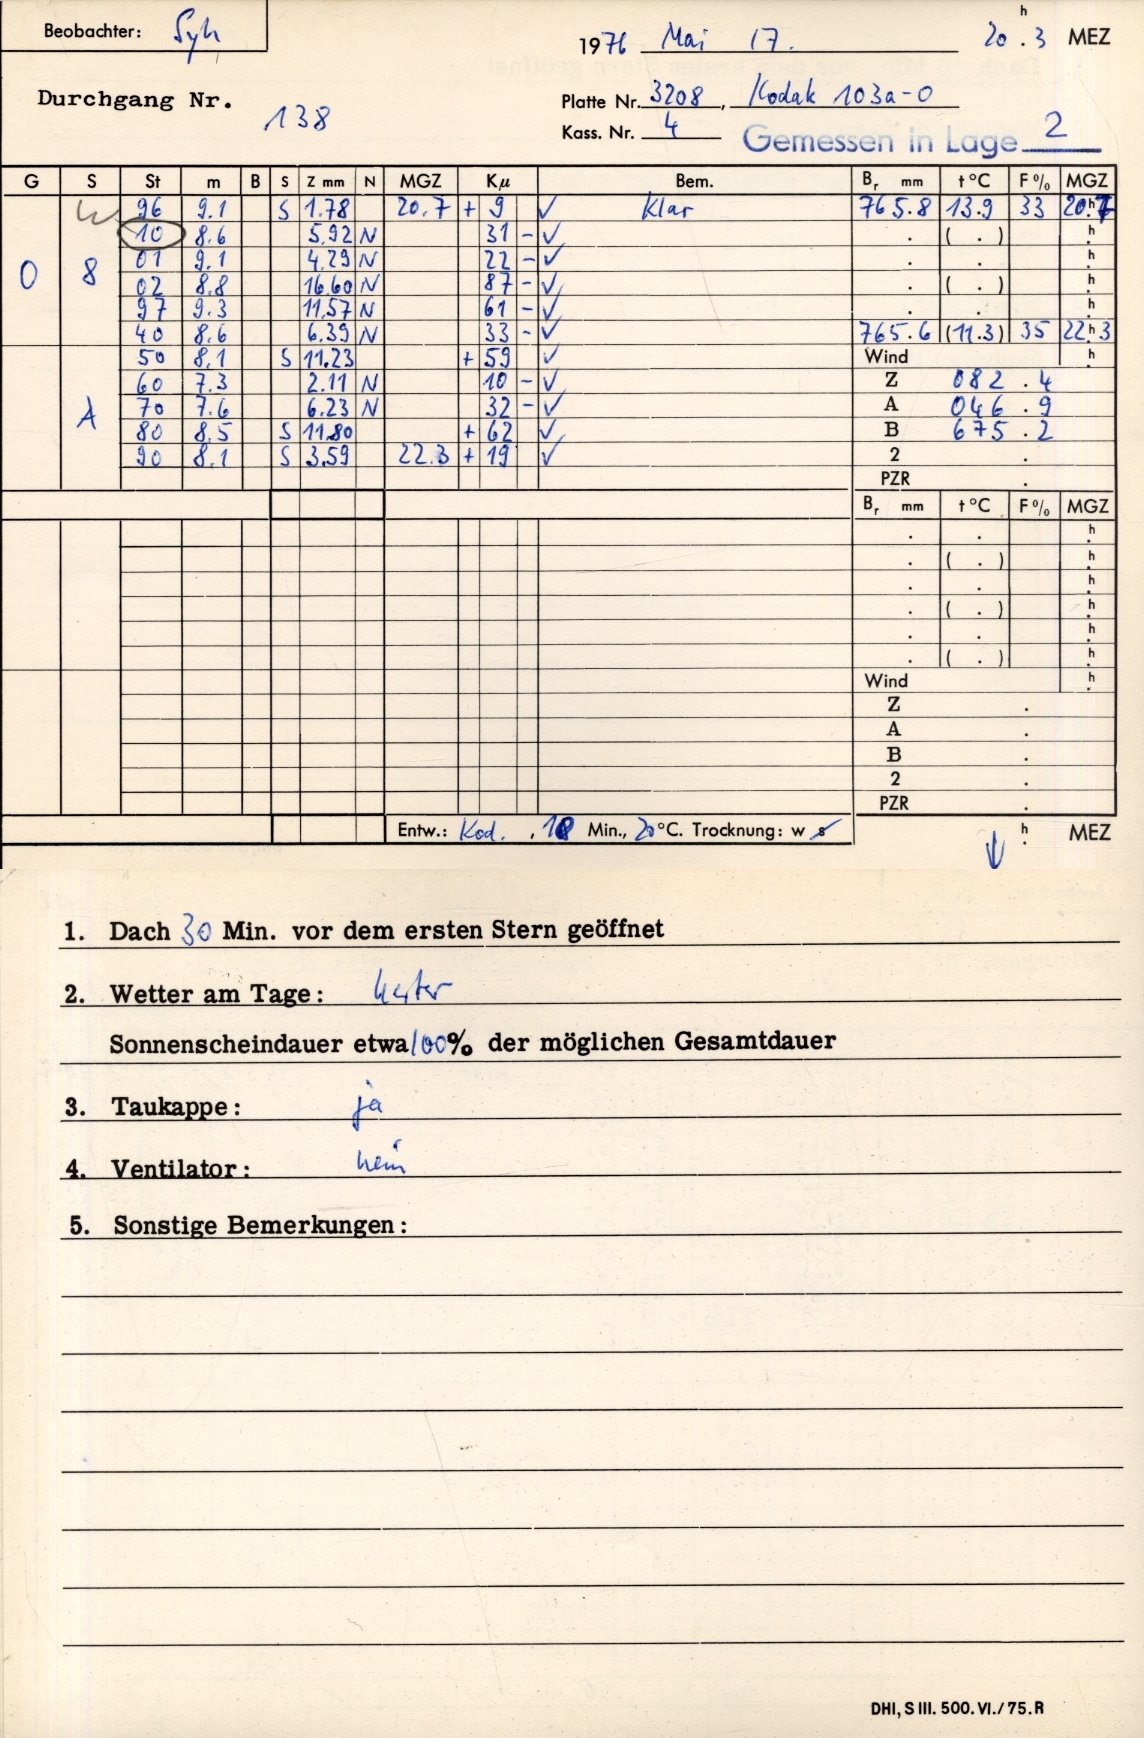 Beobachter: Syh
1976 Mai 17. 20 h . 3 MEZ
Durchgang Nr. 138
Platte Nr. 3208, Kodak 103a-O
Kass. Nr. 4
Gemessen in Lage 2
G S St m B S Z mm N MGZ Kμ Bem. Br mm t °C F % MGZ
96 9.1 S 1.78 20.7 + 9 ✓ Klar 765.8 13.9 33 20.h7
10 8.6 5.92 N 31 - ✓ . ( . ) h
0 8 01 9.1 4.29 N 22 - ✓ . . h
02 8.8 16.60 N 87 - ✓ . ( . ) h
97 9.3 11.57 N 61 - ✓ . . h
40 8.6 6.39 N 33 - ✓ 765.6 (11.3) 35 22.h3
50 8.1 S 11.23 + 59 ✓ Wind h
60 7.3 2.11 N 10 - ✓ Z 082.4
A 70 7.6 6.23 N 32 - ✓ A 046.9
80 8.5 S 11.80 + 62 ✓ B 675.2
90 8.1 S 3.59 22.3 + 19 ✓ 2 .
PZR .
Br mm t °C F % MGZ
. . h
. ( . ) h
. . h
. ( . ) h
. . h
. ( . ) h
Wind h
Z .
A .
B .
2 .
PZR .
Entw.: Kod. , 18 Min., 20 °C. Trocknung: w s ↓ h . MEZ
1. Dach 30 Min. vor dem ersten Stern geöffnet
2. Wetter am Tage: heiter
Sonnenscheindauer etwa 100% der möglichen Gesamtdauer
3. Taukappe: ja
4. Ventilator: nein
5. Sonstige Bemerkungen:
DHI, S III. 500. VI./75. R